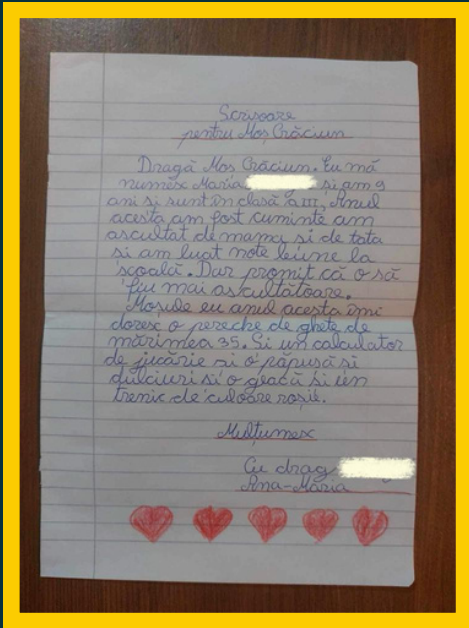 Scrisoare
pentru Moș Crăciun
Dragă Moș Crăciun. Eu mă
numesc Maria și am 9
ani și sunt în clasă a III, Anul
acesta am fost cuminte am
ascultat de mama și de tata
și am luat note beiune la
școală. Dar promit că o să
fiu mai ascultătoare.
Moșule eu anul acesta îmi
doresc o pereche de ghete de
mărimea 35. Și un calculator
de jucărie și o păpușă și
dulciuri și o geacă și un
trenic de culoare roșie.
Mulțumesc
Cu drag
Ana-Maria